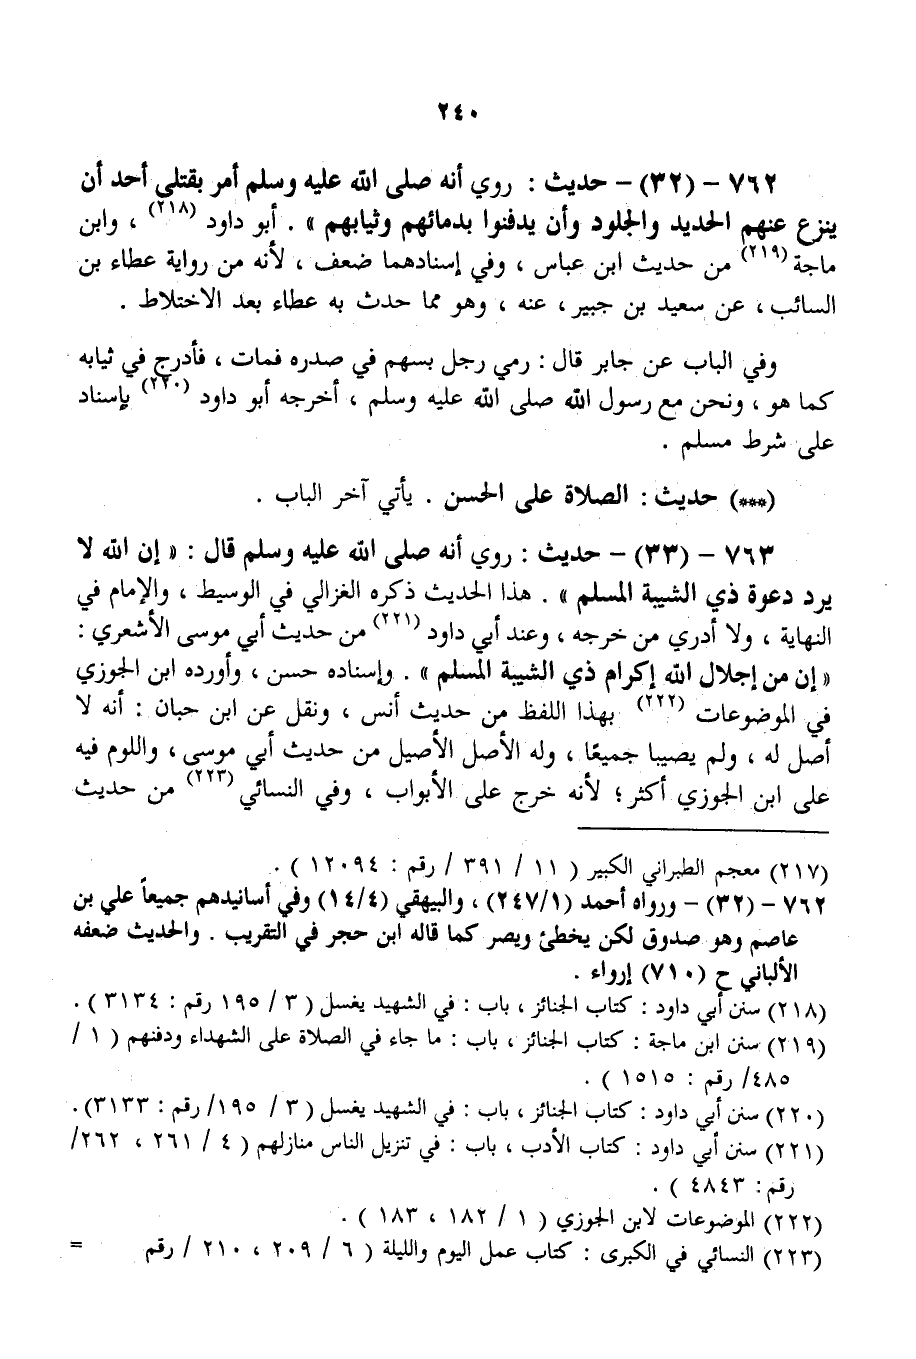 ٢٤٠
٧٦٢ – (٣٢) – حديث : روي أنه صلى الله عليه وسلم أمر بقتلى أحد أن
ينزع عنهم الحديد والجلود وأن يدفنوا بدمائهم وثيابهم » . أبو داود (٢١٨) ، وابن
ماجة (٢١٩) من حديث ابن عباس ، وفي إسنادهما ضعف ، لأنه من رواية عطاء بن
السائب ، عن سعيد بن جبير ، عنه ، وهو مما حدث به عطاء بعد الاختلاط .
وفي الباب عن جابر قال : رمي رجل بسهم في صدره فمات ، فأدرج في ثيابه
كما هو ، ونحن مع رسول الله صلى الله عليه وسلم ، أخرجه أبو داود (٢٢٠) بإسناد
على شرط مسلم .
(***) حديث : الصلاة على الحسن . يأتي آخر الباب .
٧٦٣ – (٣٣) – حديث : روي أنه صلى الله عليه وسلم قال : « إن الله لا
يرد دعوة ذي الشيبة المسلم » . هذا الحديث ذكره الغزالي في الوسيط ، والإمام في
النهاية ، ولا أدري من خرجه ، وعند أبي داود (٢٢١) من حديث أبي موسى الأشعري :
« إن من إجلال الله إكرام ذي الشيبة المسلم » . وإسناده حسن ، وأورده ابن الجوزي
في الموضوعات (٢٢٢) بهذا اللفظ من حديث أنس ، ونقل عن ابن حبان : أنه لا
أصل له ، ولم يصيبا جميعًا ، وله الأصل الأصيل من حديث أبي موسى ، واللوم فيه
على ابن الجوزي أكثر ؛ لأنه خرج على الأبواب ، وفي النسائي (٢٢٣) من حديث
(٢١٧) معجم الطبراني الكبير ( ١١ / ٣٩١ / رقم : ١٢٠٩٤ ) .
٧٦٢ – (٣٢) – ورواه أحمد (٢٤٧/١) ، والبيهقي (١٤/٤) وفي أسانيدهم جميعاً علي بن
عاصم وهو صدوق لكن يخطئ ويصر كما قاله ابن حجر في التقريب . والحديث ضعفه
الألباني ح (٧١٠) إرواء .
(٢١٨) سنن أبي داود : كتاب الجنائز ، باب : في الشهيد يغسل ( ٣ / ١٩٥ رقم : ٣١٣٤ ) .
(٢١٩) سنن ابن ماجة : كتاب الجنائز ، باب : ما جاء في الصلاة على الشهداء ودفنهم ( ١ /
٤٨٥/ رقم : ١٥١٥ ) .
(٢٢٠) سنن أبي داود : كتاب الجنائز ، باب : في الشهيد يغسل ( ٣ / ١٩٥/ رقم : ٣١٣٣).
(٢٢١) سنن أبي داود : كتاب الأدب ، باب : في تنزيل الناس منازلهم ( ٤ / ٢٦١ ، ٢٦٢/
رقم : ٤٨٤٣ ) .
(٢٢٢) الموضوعات لابن الجوزي ( ١ / ١٨٢ ، ١٨٣ ) .
(٢٢٣) النسائي في الكبرى : كتاب عمل اليوم والليلة ( ٦ / ٢٠٩ ، ٢١٠ / رقم =